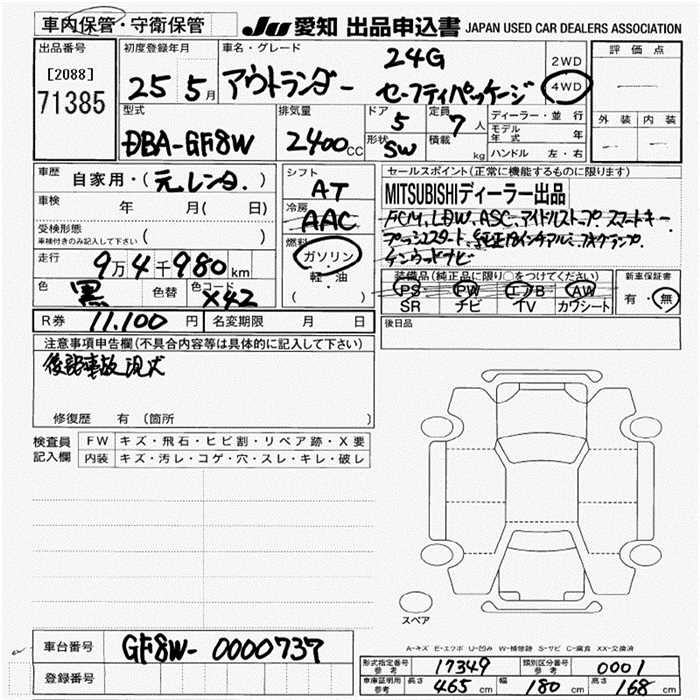 車内保管・守衛保管 JU 愛知 出品申込書 JAPAN USED CAR DEALERS ASSOCIATION
出品番号
[2088]
71385
初度登録年月
25 5月
車名・グレード
アウトランダー
24G
セーフティパッケージ
2WD
4WD
評価点
外装 内装
型式
DBA-GF8W
排気量
2400CC
ドア
5
形状
SW
定員
7人
積載
kg
ディーラー・並行
モデル年式 年
ハンドル 左・右
車歴
自家用・(元レンタ.)
車検 年 月( 日)
受検形態
車検付きのみ記入して下さい ( )
走行
9万4千980km
色
黒
色替
色コード
X42
シフト
AT
冷房
AAC
燃料
ガソリン
・
軽・油
( )
セールスポイント(正常に機能するものに限ります)
MITSUBISHIディーラー出品
FCM、LDW、ASC、アイドルストップ、スマートキー
プッシュスタート、純正18インチアルミ、フォグランプ、
ケンウッドナビ
装備品(純正品に限り○をつけてください)
PS PW エアB AW
SR ナビ TV カワシート
新車保証書
有・無
R券 11,100円 名変期限 月 日
後日品
注意事項申告欄(不具合内容等は具体的に記入して下さい)
後部事故現状
修復歴 有 (箇所 )
検査員
記入欄
FW キズ・飛石・ヒビ割・リペア跡・X要
内装 キズ・汚レ・コゲ・穴・スレ・キレ・破レ
スペア
A-キズ E-エクボ U-凹み W-補修跡 S-サビ C-腐食 XX-交換済
車台番号 GF8W-0000737
登録番号
形式指定番号
参考
17349
類別区分番号
参考
0001
車庫証明用
参考
長さ 465cm 幅 180cm 高さ 168cm